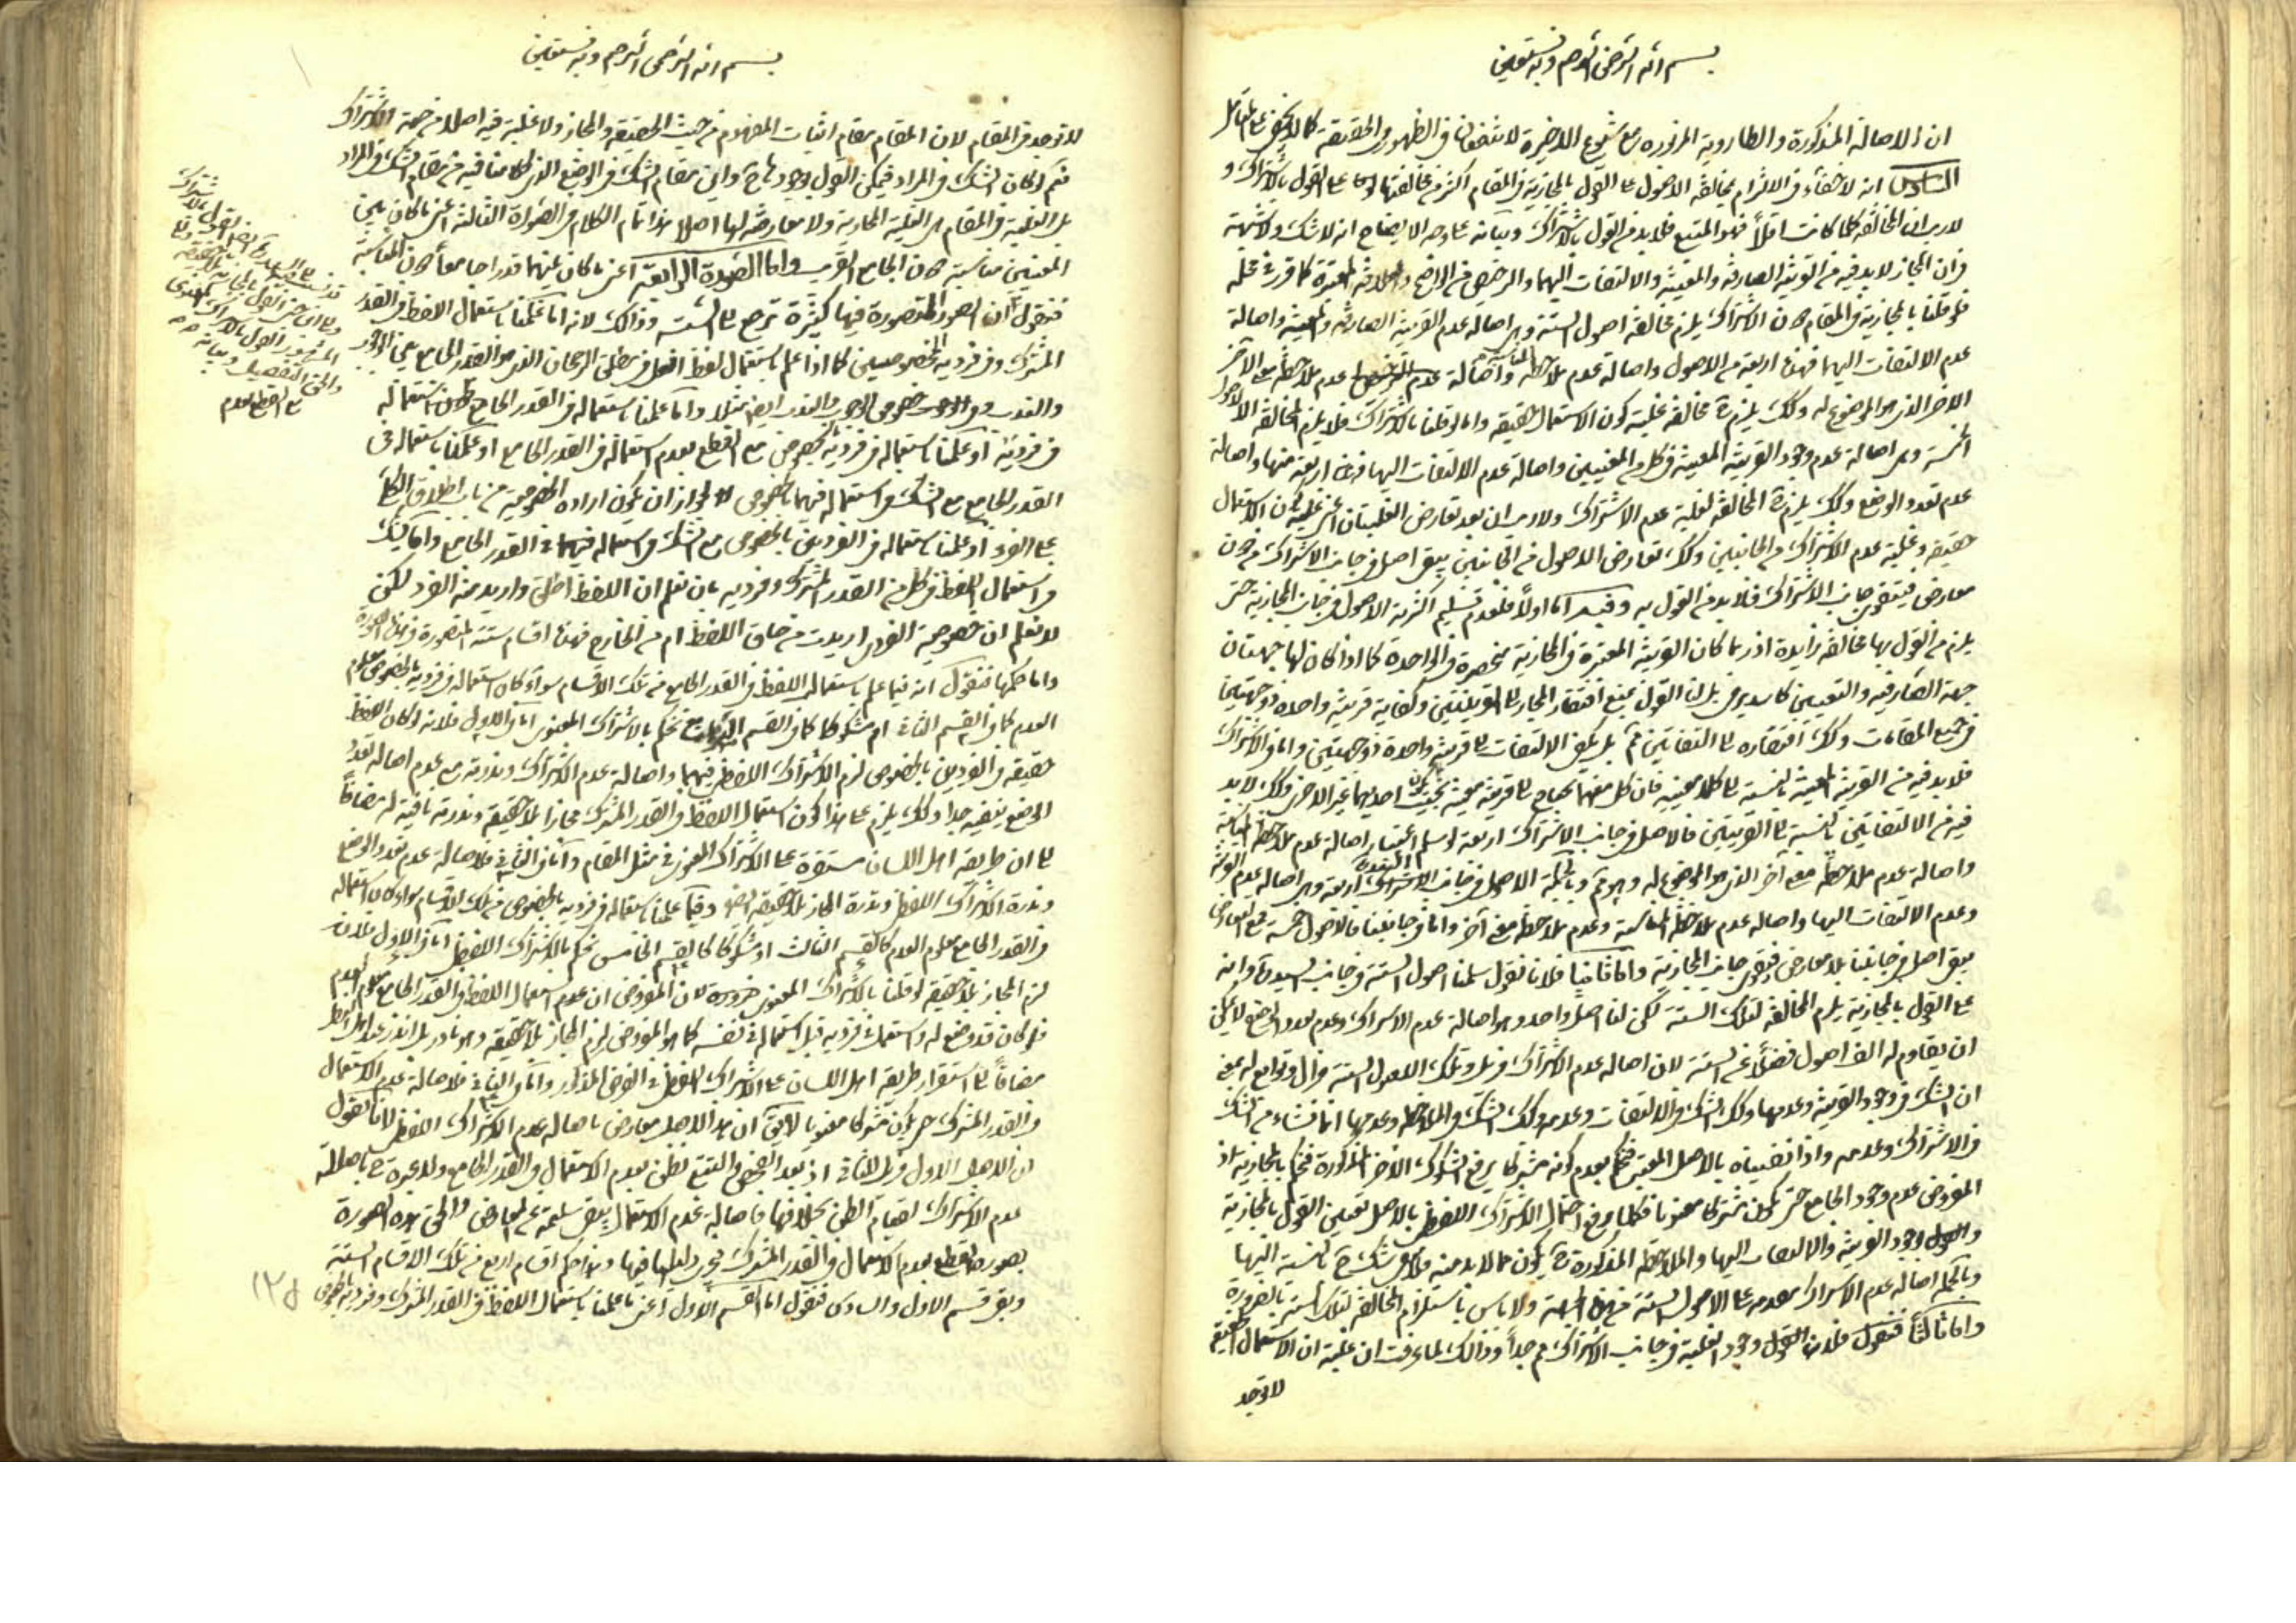 بسم الله الرحمن الرحيم وبه نستعين
ان الاصالة المذكورة والطارويه المزبوره مع شيوع الاخيرة لا ينفعان في الظهور والحقيقة كما لا يخفى على المتأمل
السادس انه لا خفاء في الالتزام بمخالفة الاصول على القول بالمجازية في المقام اكثر من مخالفتها على القول بالاشتراك و
لا ريب ان المخالفة كلما كانت اقلّا فهو المتبع فلا بد من القول بالاشتراك وبيانه على وجه الايضاح انه لا شك ولا شبهة
في ان المجاز لا بد فيه من القرينة الصارفة والمعينة والالتفات اليهما والرخصة من الواضع والعلاقة المعتبرة كما قرر في محله
فلو قلنا بالمجازية في المقام دون الاشتراك يلزم مخالفة اصول الستة وهي اصالة عدم القرينة الصارفة والمعينة واصالة
عدم الالتفات اليهما فهذه اربعة من الاصول واصالة عدم ملاحظة المناسبة واصالة عدم ملاحظة معنى الآخر
الاخر الذي هو الموضوع له وكك يلزم ح مخالفة غلبة كون الاستعمال حقيقة واما لو قلنا بالاشتراك فلا يلزم المخالفة الا لاصول
الخمسة وهي اصالة عدم وجود القرينة المعينة في كل من المعنيين واصالة عدم الالتفات اليها فهذه اربعة منها واصالة
عدم تعدد الوضع وكك يلزم ح المخالفة لغلبة عدم الاشتراك ولا ريب ان بعد تعارض الغلبتان اعنى غلبة كون الاستعمال
حقيقة وغلبة عدم الاشتراك من الجانبين وكك تعارض الاصول من الجانبين يبقى اصل في جانب الاشتراك من دون
معارض فيتقوى جانب الاشتراك فلا بد من القول به وفيه اما اولا فلعدم تسليم اكثرية الاصول في جانب المجازية حتى
يلزم من القول بها مخالفة زايدة اذ ربما كان القرينة المعتبرة في المجازية منحصرة في الواحدة كما اذا كان لها جهتان
جهة الصارفية والتعيين كاسد يرمى بل لنا القول بمنع افتقار المجاز الى القرينتين وكفاية قرينة واحدة ذو جهتين
في جميع المقامات وكك افتقاره الى التفاتين ثم بل يكفى الالتفات الى قرينة واحدة ذو جهتين واما في الاشتراك
فلا بد فيه من القرينة المعينة بالنسبة الى كلا معنييه فان كل منهما يحتاج الى قرينة معينة بحيث يكون احديهما غير الاخرى وكك لا بد
فيه من الالتفاتين بالنسبة الى القرينتين فالاصل في جانب الاشتراك اربعة لو سلم اعتبار اصالة عدم ملاحظة المناسبة
واصالة عدم ملاحظة معنى آخر الذي هو الموضوع له وهو ثم وبالجملة الاصول في جانب الاشتراك اربعة وهي اصالة عدم القرينة
وعدم الالتفات اليها واصالة عدم ملاحظة المناسبة وعدم ملاحظة معنى آخر واما في جانبنا فالاصول خمسة مع المعارض
يبقى اصل في جانبنا بلا معارض فيقوى جانب المجازية واما ثانيا فلانا نقول سلمنا اصول الستة في جانب السيد ره وانه
على القول بالمجازية يلزم المخالفة لتلك الستة لكن لنا اصل واحد وهو اصالة عدم الاشتراك وعدم تعدد الوضع لا يمكن
ان يقاوم له الف اصول فضلا عن الستة لان اصالة عدم الاشتراك مزيل وتلك الاصول الستة مزال وتوابع له بمعنى
ان الشك في وجود القرينة وعدمها وكك الشك في الالتفات وعدمه وكك الشك في الملاحظة وعدمها انما نشاء من الشك
في الاشتراك وعدمه واذا نفيناه بالاصل المعتبر فنحكم بعدم كونه مشتركا يرفع الشكوك الاخر المذكورة فنحكم بالمجازية اذ
المفروض عدم وجود الجامع حتى يكون مشتركا معنويا فكلما يرفع احتمال الاشتراك اللفظي بالاصل تعين القول بالمجازية
والقول وجود القرينة والالتفات اليها والملاحظة المذكورة ح يكون مما لا بد منه فلا يبقى شك ح بالنسبة اليها
وبالجملة اصالة عدم الاشتراك مقدمة على الاصول الستة من هذه الجهة ولا باس باستلزام المخالفة لتلك الستة بالضرورة
واما ثالثا فنقول فلان القول وجود الغلبة في جانب الاشتراك ثم جدا وذلك لما عرفت ان غلبة ان الاستعمال الحقيقة
لا توجد
بسم الله الرحمن الرحيم وبه نستعين
لا توجد في المقام لان المقام مقام اثبات المفهوم من حيث الحقيقة والمجاز ولا غلبة فيه اصلا من جهة الاشتراك
نعم لو كان الشك في المراد فيمكن القول بوجودها ح واين مقام الشك في الوضع الذي كلامنا فيه من مقام الشك في المراد
بل الغلبة في المقام هي الغلبة المجازية ولا معارضة لها اصلا هذا تمام الكلام في الصورة الثالثة اعنى ما كان بين
المعنيين مناسبة دون الجامع القريب واما الصورة الرابعة اعنى ما كان بينهما قدر جامعا دون المناسبة
فنقول ان الصور المتصورة فيها كثيرة ترجع الى الستة وذلك لانه اما علمنا باستعمال اللفظ في القدر
المشترك وفي فرديه بالخصوصيين كما اذا علم باستعمال لفظ افعل في مطلق الرجحان الذي هو القدر الجامع بين الوجوب
والندب وفي خصوص الوجوب والندب ايضا مثلا واما علمنا باستعماله في القدر الجامع دون استعماله
في فرديه او علمنا باستعماله في فرديه بخصوص مع القطع بعدم استعماله في القدر الجامع او علمنا باستعماله في
القدر الجامع مع الشك في استعماله فيهما بالخصوص لجواز ان يكون ارادة الخصوصية من باب اطلاق الكلى
على الفرد او علمنا باستعماله في الفردين بالخصوص مع الشك في استعماله في القدر الجامع واما بالشك
في استعمال اللفظ في كل من القدر المشترك وفرديه بان نعلم ان اللفظ اطلق واريد منه الفرد لكن
لا نعلم ان خصوصية الفرد اريدت من حاق اللفظ ام من الخارج فهذه اقسام ستة المتصورة في هذه الصورة
واما حكمها فنقول انه فيما علم باستعمال اللفظ في القدر الجامع من تلك الاقسام سواء كان استعماله في فرديه بالخصوص معلوم
العدم كما في القسم الثاني ام مشكوكا كما في القسم الرابع نحكم بالاشتراك المعنوي اما في الاول فلانه لو كان اللفظ
حقيقة في الفردين بالخصوص لزم الاشتراك اللفظي فيهما واصالة عدم الاشتراك وندرته مع عدم اصالة تعدد
الوضع ينفيه جدا وكك يلزم على هذا كون استعمال اللفظ في القدر المشترك مجازا بلا حقيقة وندرته نافية له مضافا
الى ان طريقة اهل اللسان مستقرة على الاشتراك المعنوي في مثل المقام واما في الثاني فلاصالة عدم تعدد الوضع
وندرة الاشتراك اللفظي وندرة المجاز بلا حقيقة ايضا وفيما علمنا استعماله في فرديه بالخصوص من تلك الاقسام سواء كان استعماله
في القدر الجامع معلوم العدم كالقسم الثالث او مشكوكا كالقسم الخامس نحكم بالاشتراك اللفظي اما في الاول فلانه
لزم المجاز بلا حقيقة لو قلنا بالاشتراك المعنوي ضرورة لان المفروض ان عدم استعمال اللفظ في القدر الجامع معلوم العدم
فلو كان قد وضع له واستعمل في فرديه قبل استعماله في نفسه كما هو المفروض لزم المجاز بلا حقيقة وهو نادر بل اندر عند اهل النظر
مضافا الى استقرار طريقة اهل اللسان على الاشتراك اللفظي في الفرض المذكور واما في الثاني فلاصالة عدم الاستعمال
في القدر المشترك حتى يكون مشتركا معنويا لا يقال ان هذا الاصل معارض باصالة عدم الاشتراك اللفظي لانا نقول
ان الاصل الاول مزيل للثاني اذ بعد الفحص والتتبع نظن بعدم الاستعمال في القدر الجامع ولا عبرة ح باصالة
عدم الاشتراك لقيام الظن بخلافها فاصالة عدم الاستعمال يبقى سليمة عن المعارض والحق هذه الصورة
بصورة القطع بعدم الاستعمال في القدر المشترك فيجرى دليلها فيها وهذا حكم اقسام اربع من تلك الاقسام الستة
وبقى قسم الاول والسادس فنقول اما القسم الاول اعنى ما علمنا باستعمال اللفظ في القدر المشترك وفرديه بالخصوص
١٢٥